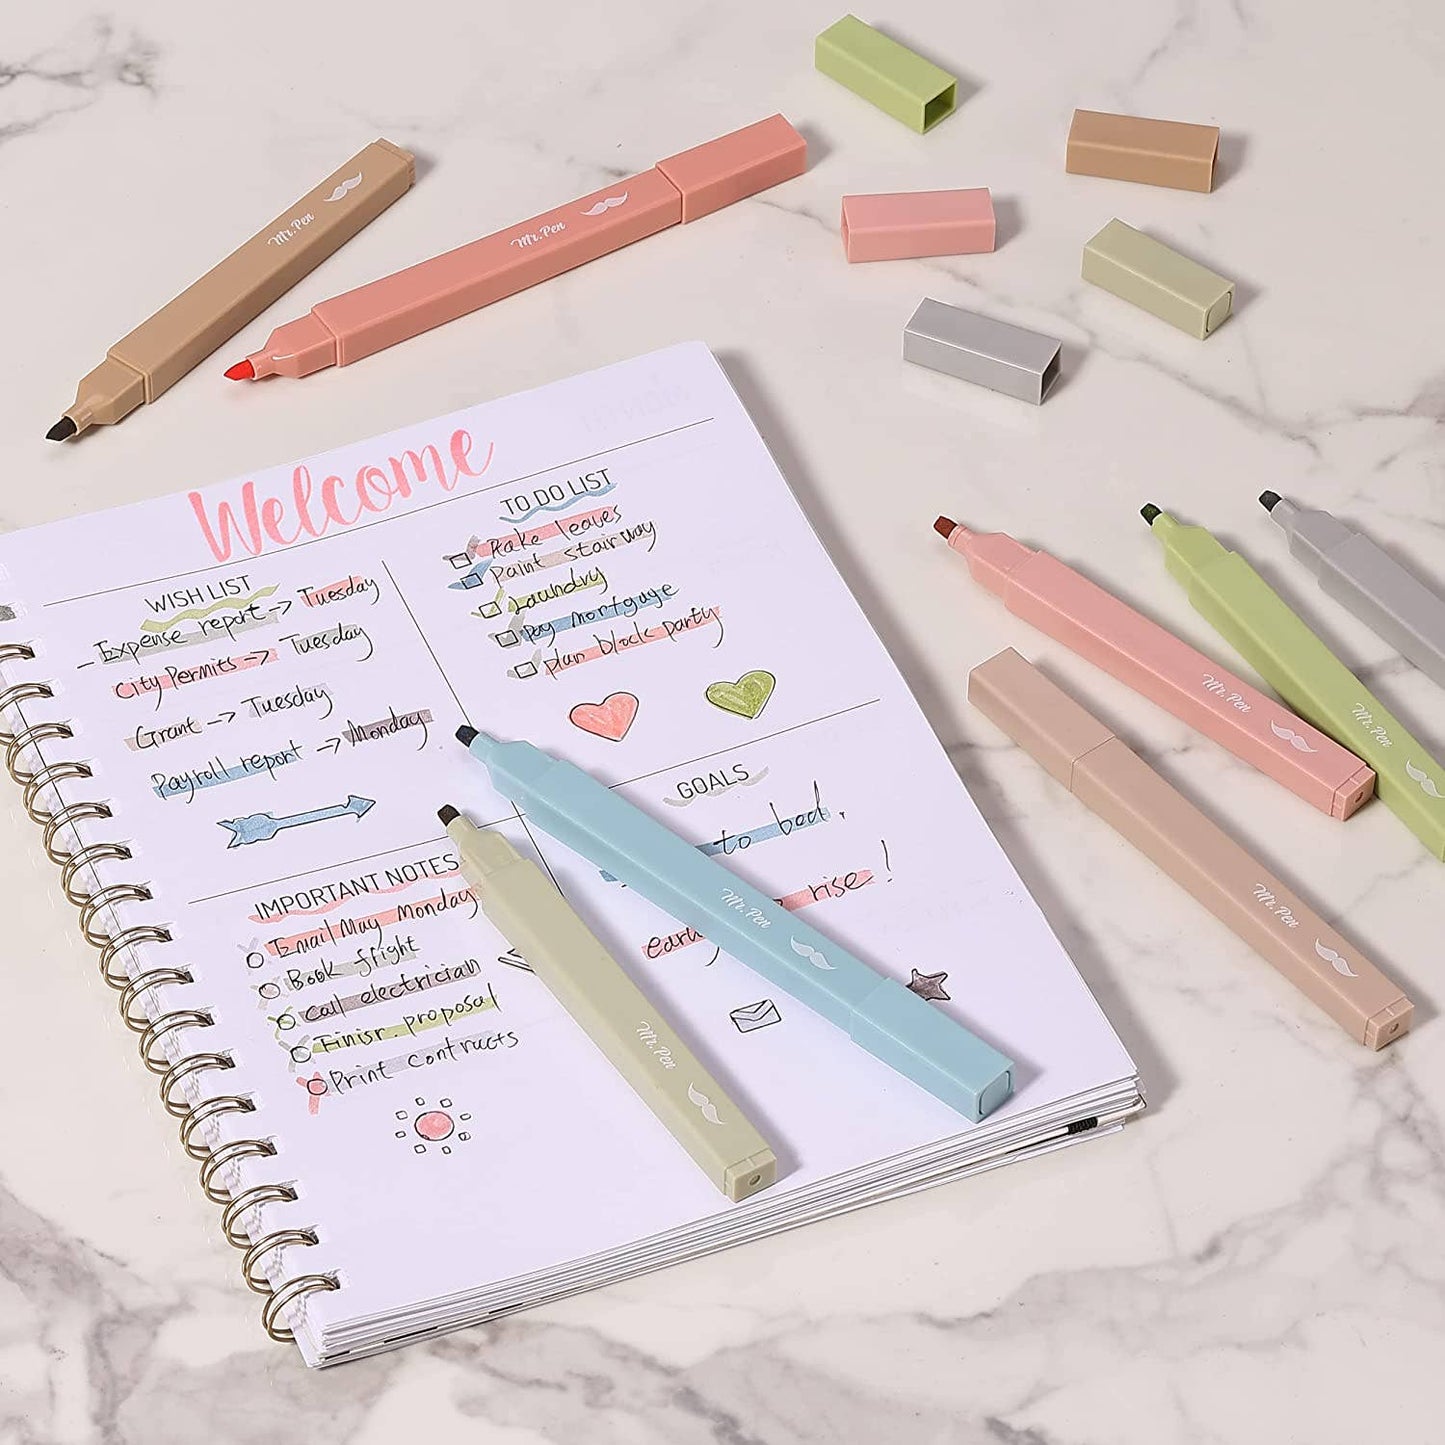 Mr. Pen
Mr. Pen
Welcome
WISH LIST
Expense report -> Tuesday
City Permits -> Tuesday
Grant -> Tuesday
Payroll report -> Monday
TO DO LIST
Rake leaves
Paint stairway
Laundry
Pay mortgage
plan block party
IMPORTANT NOTES
Email May Monday
Book flight
call electrician
Finisr. proposal
Print contracts
GOALS
to bed.
early rise!
Mr. Pen
Mr. Pen
Mr. Pen
Mr. Pen
Mr. Pen